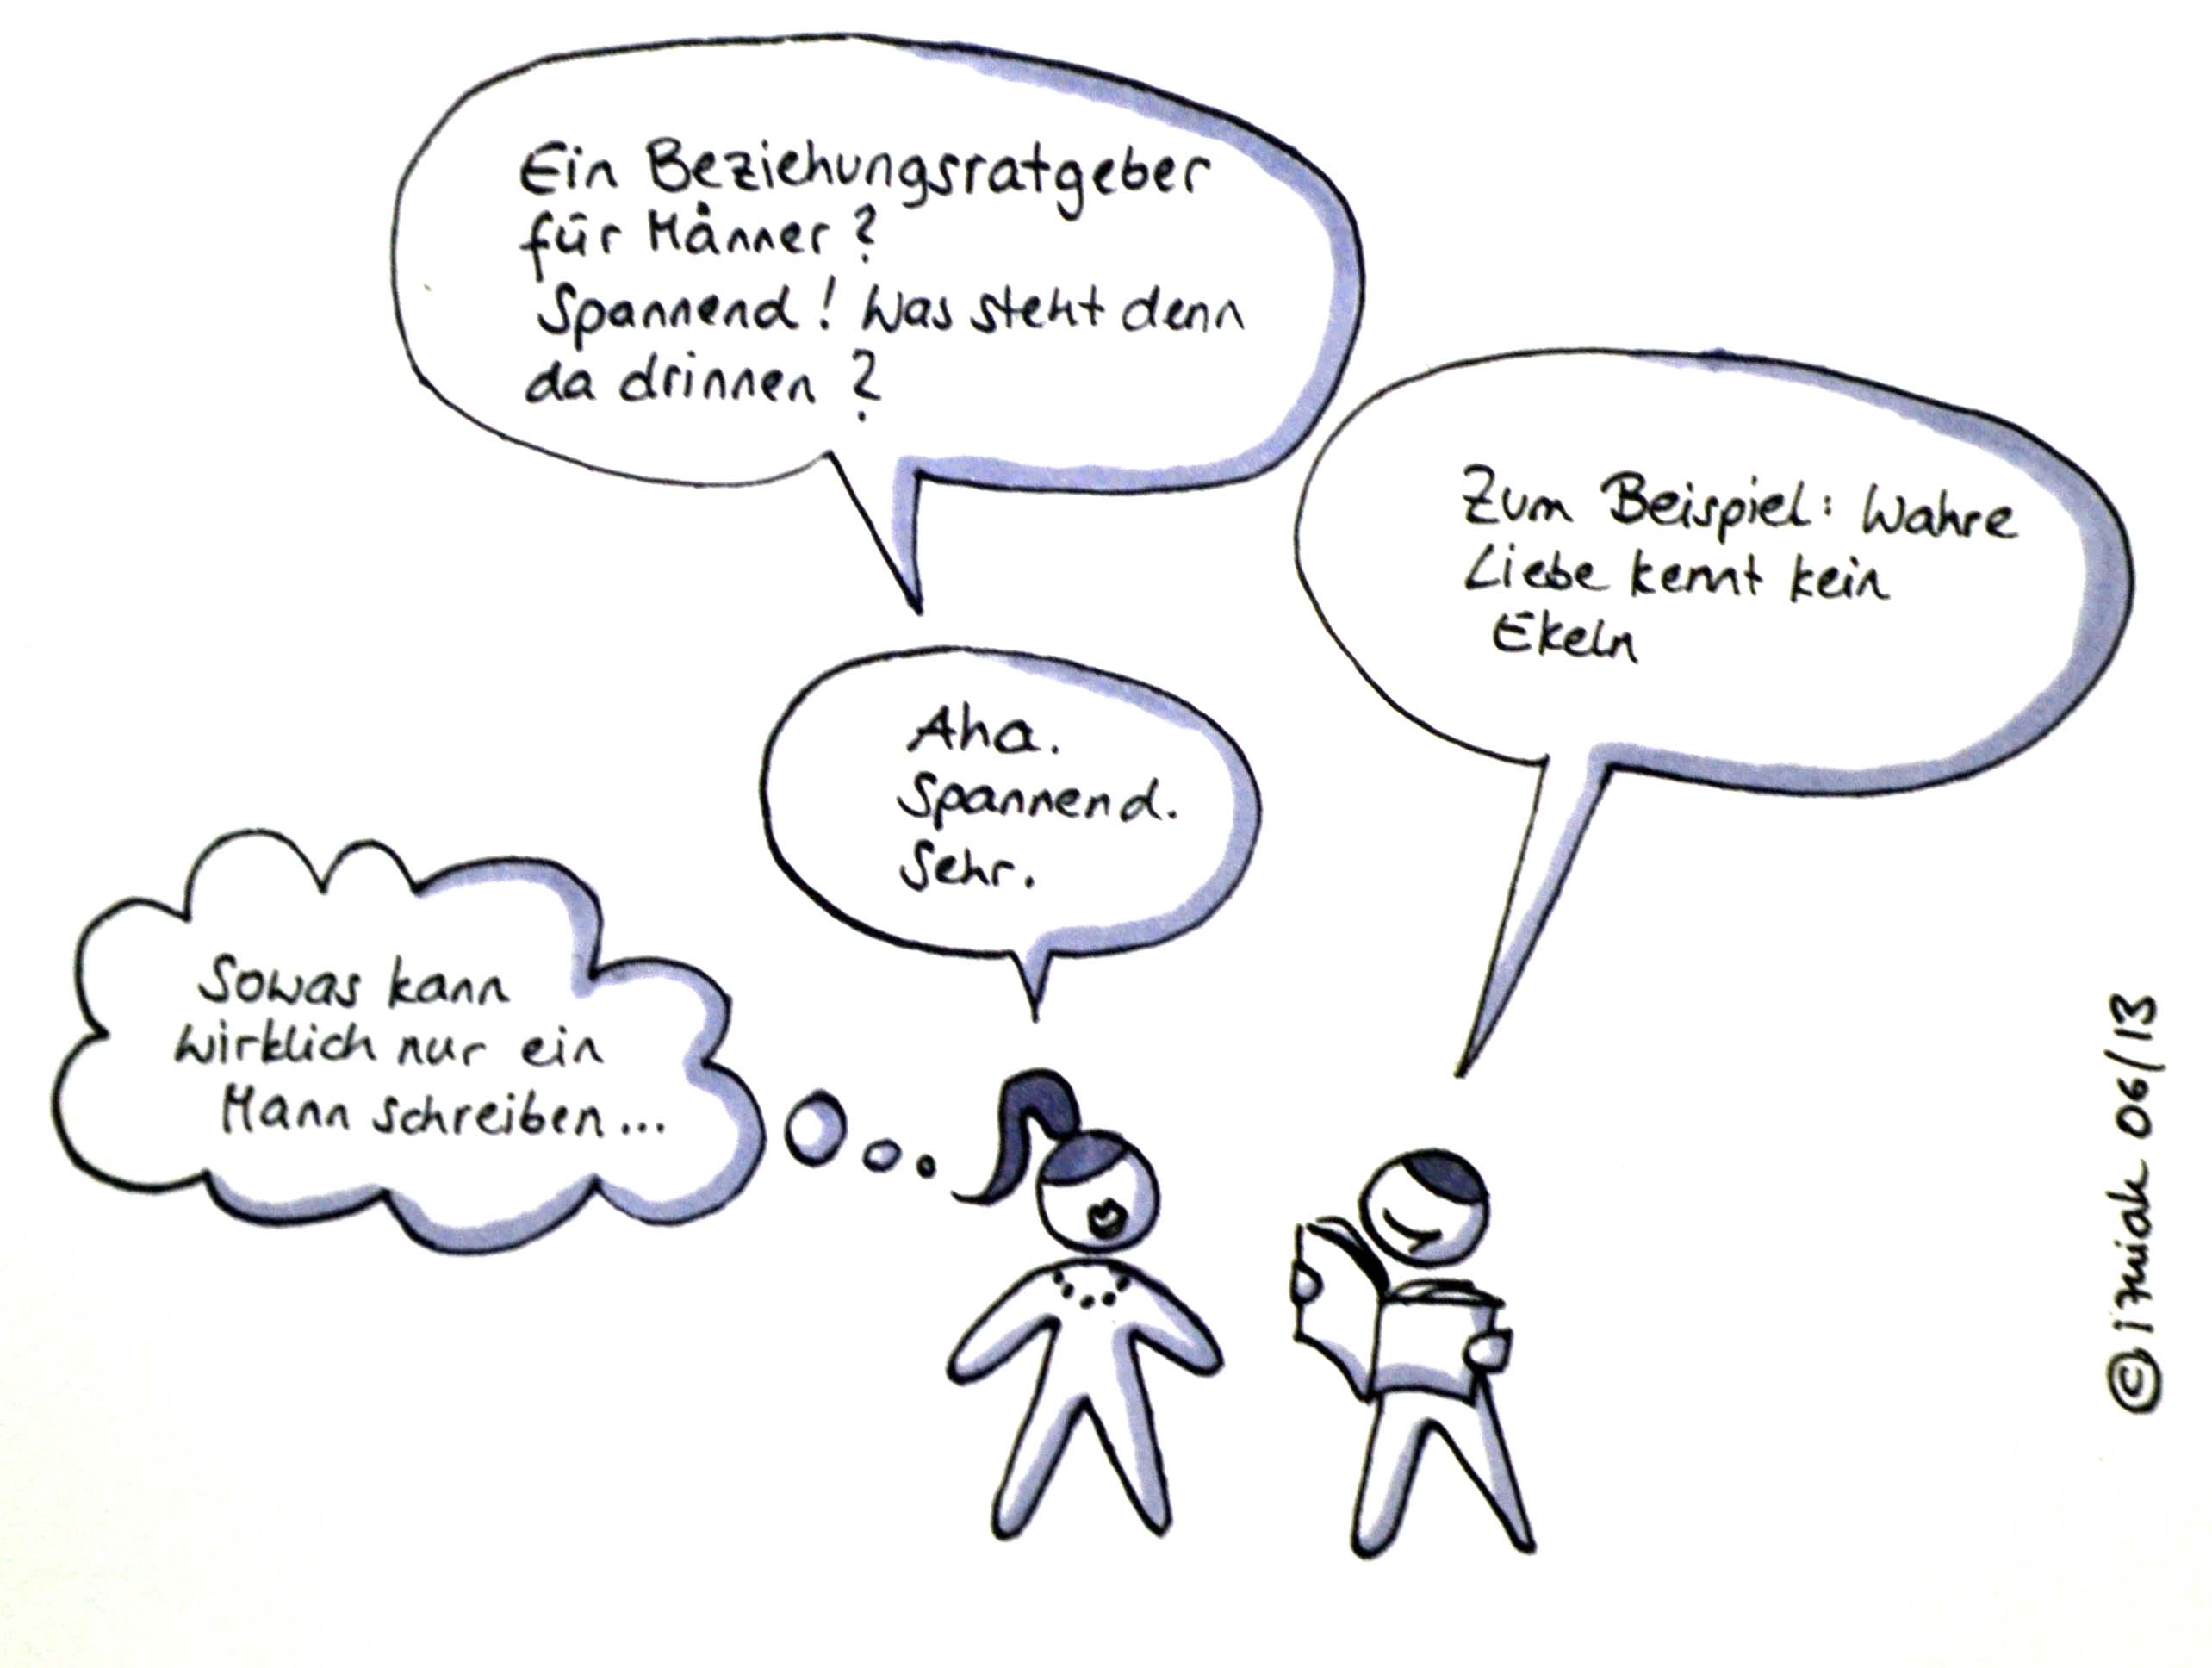 Ein Beziehungsratgeber
für Männer?
Spannend! Was steht denn
da drinnen?
Zum Beispiel: Wahre
Liebe kennt kein
Ekeln
Aha.
Spannend.
Sehr.
Sowas kann
wirklich nur ein
Mann schreiben...
06/13